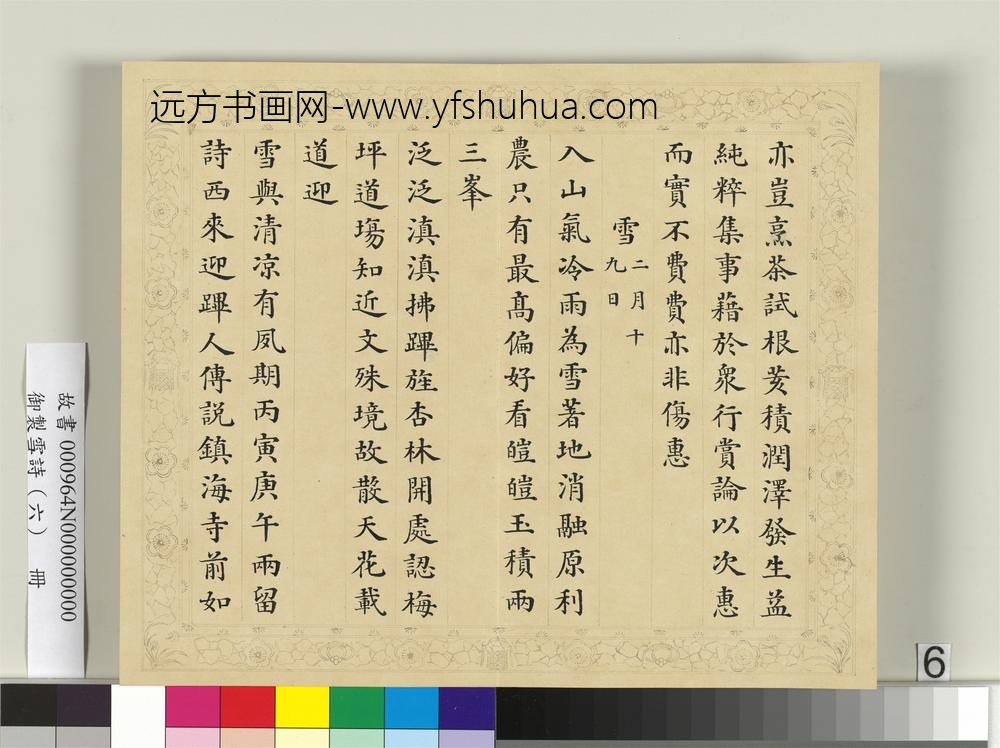 远方书画网-www.yfshuhua.com
亦豈烹茶試根荄積潤澤發生益
純粹集事藉於衆行賞論以次惠
而實不費費亦非傷惠
雪二月十九日
入山氣冷雨為雪著地消融原利
農只有最高偏好看皚皚玉積兩
三峯
泛泛滇滇拂蹕旌杏林開處認梅
坪道場知近文殊境故散天花載
道迎
雪與清凉有夙期丙寅庚午兩留
詩西來迎蹕人傳説鎮海寺前如
故書 000964N000000000
御製雪詩(六) 冊
6